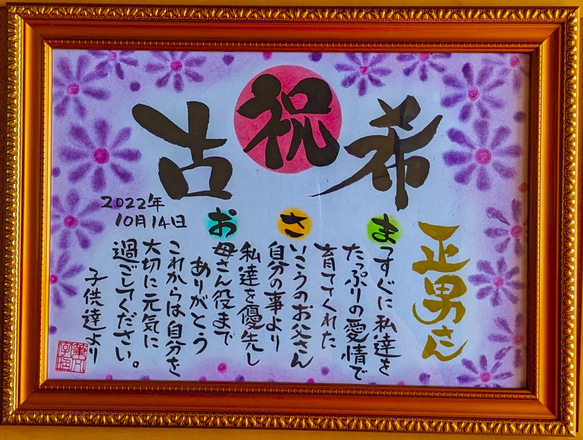 古 祝 希
正男さん
まっすぐに私達を
たっぷりの愛情で
育ててくれた
さいこうのお父さん
自分の事より
私達を優先し
お母さん役まで
ありがとう
これからは自分を
大切に元気に
過ごしてください。
子供達より
2022年
10月14日